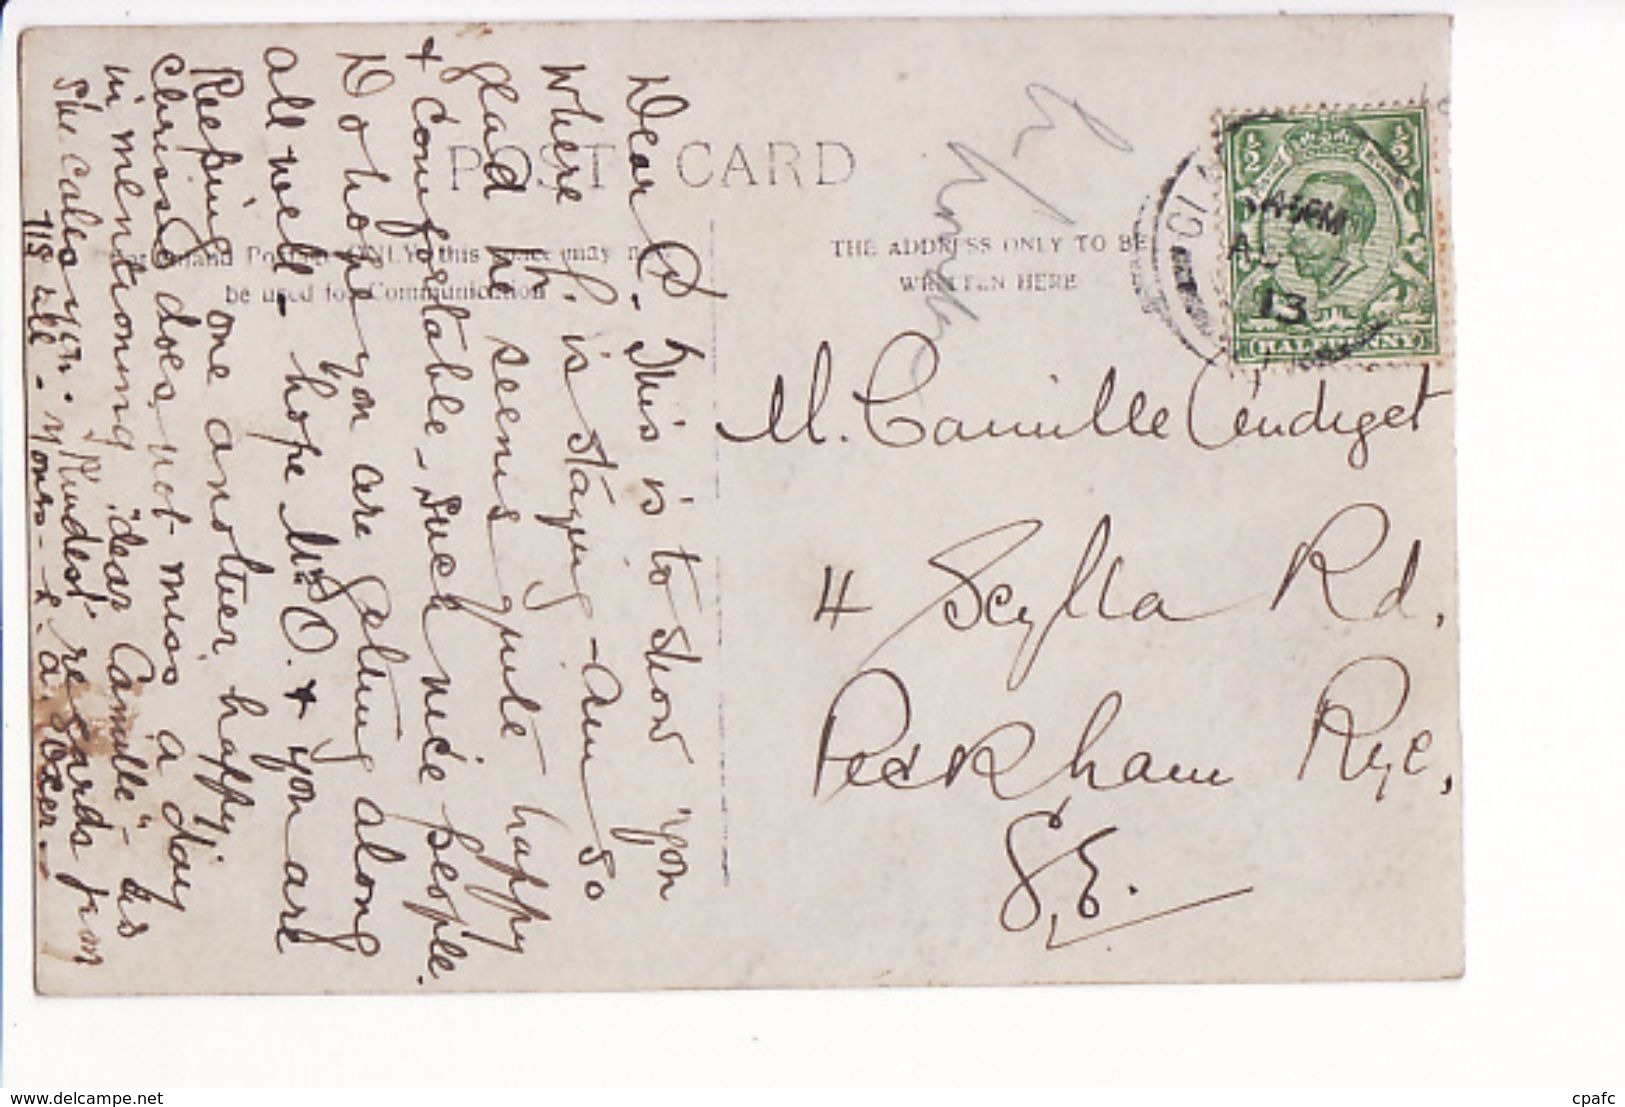 POST CARD
For Inland Postage ONLY, this space may now
be used for Communication
THE ADDRESS ONLY TO BE
WRITTEN HERE
HALFPENNY
13
M. Camille
4 Scylla Rd.
Peckham Rye,
S.E.
Dear C. - This is to show you
where h. is staying - am so
glad he seems quite happy
& comfortable - Such nice people.
Do hope you are getting along
all well - hope Mrs O. & you are
Keeping one another happy
Chrissie does not miss a day
in mentioning "dear Camille" - as
she calls you. Kindest regards from
us all - Yours - E. A. Oxer -
www.delcampe.net
cpafc